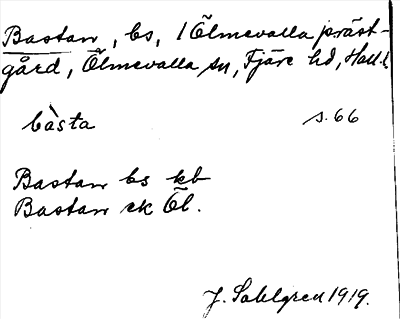 Bastan, bs, 1 Ölmevalla präst-
gård, Ölmevalla sn, Fjäre hd, Hall. l.
bàsta s. 66
Bastan bs kb
Bastan ek Öl.
J. Sahlgren 1919.